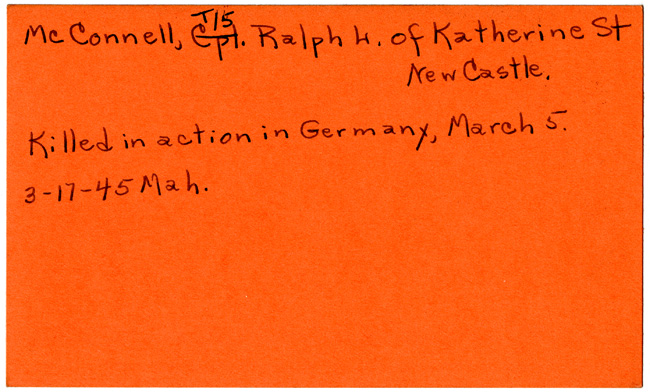 T/5
McConnell, Cpl. Ralph H. of Katherine St
New Castle.
Killed in action in Germany, March 5.
3-17-45 Mah.